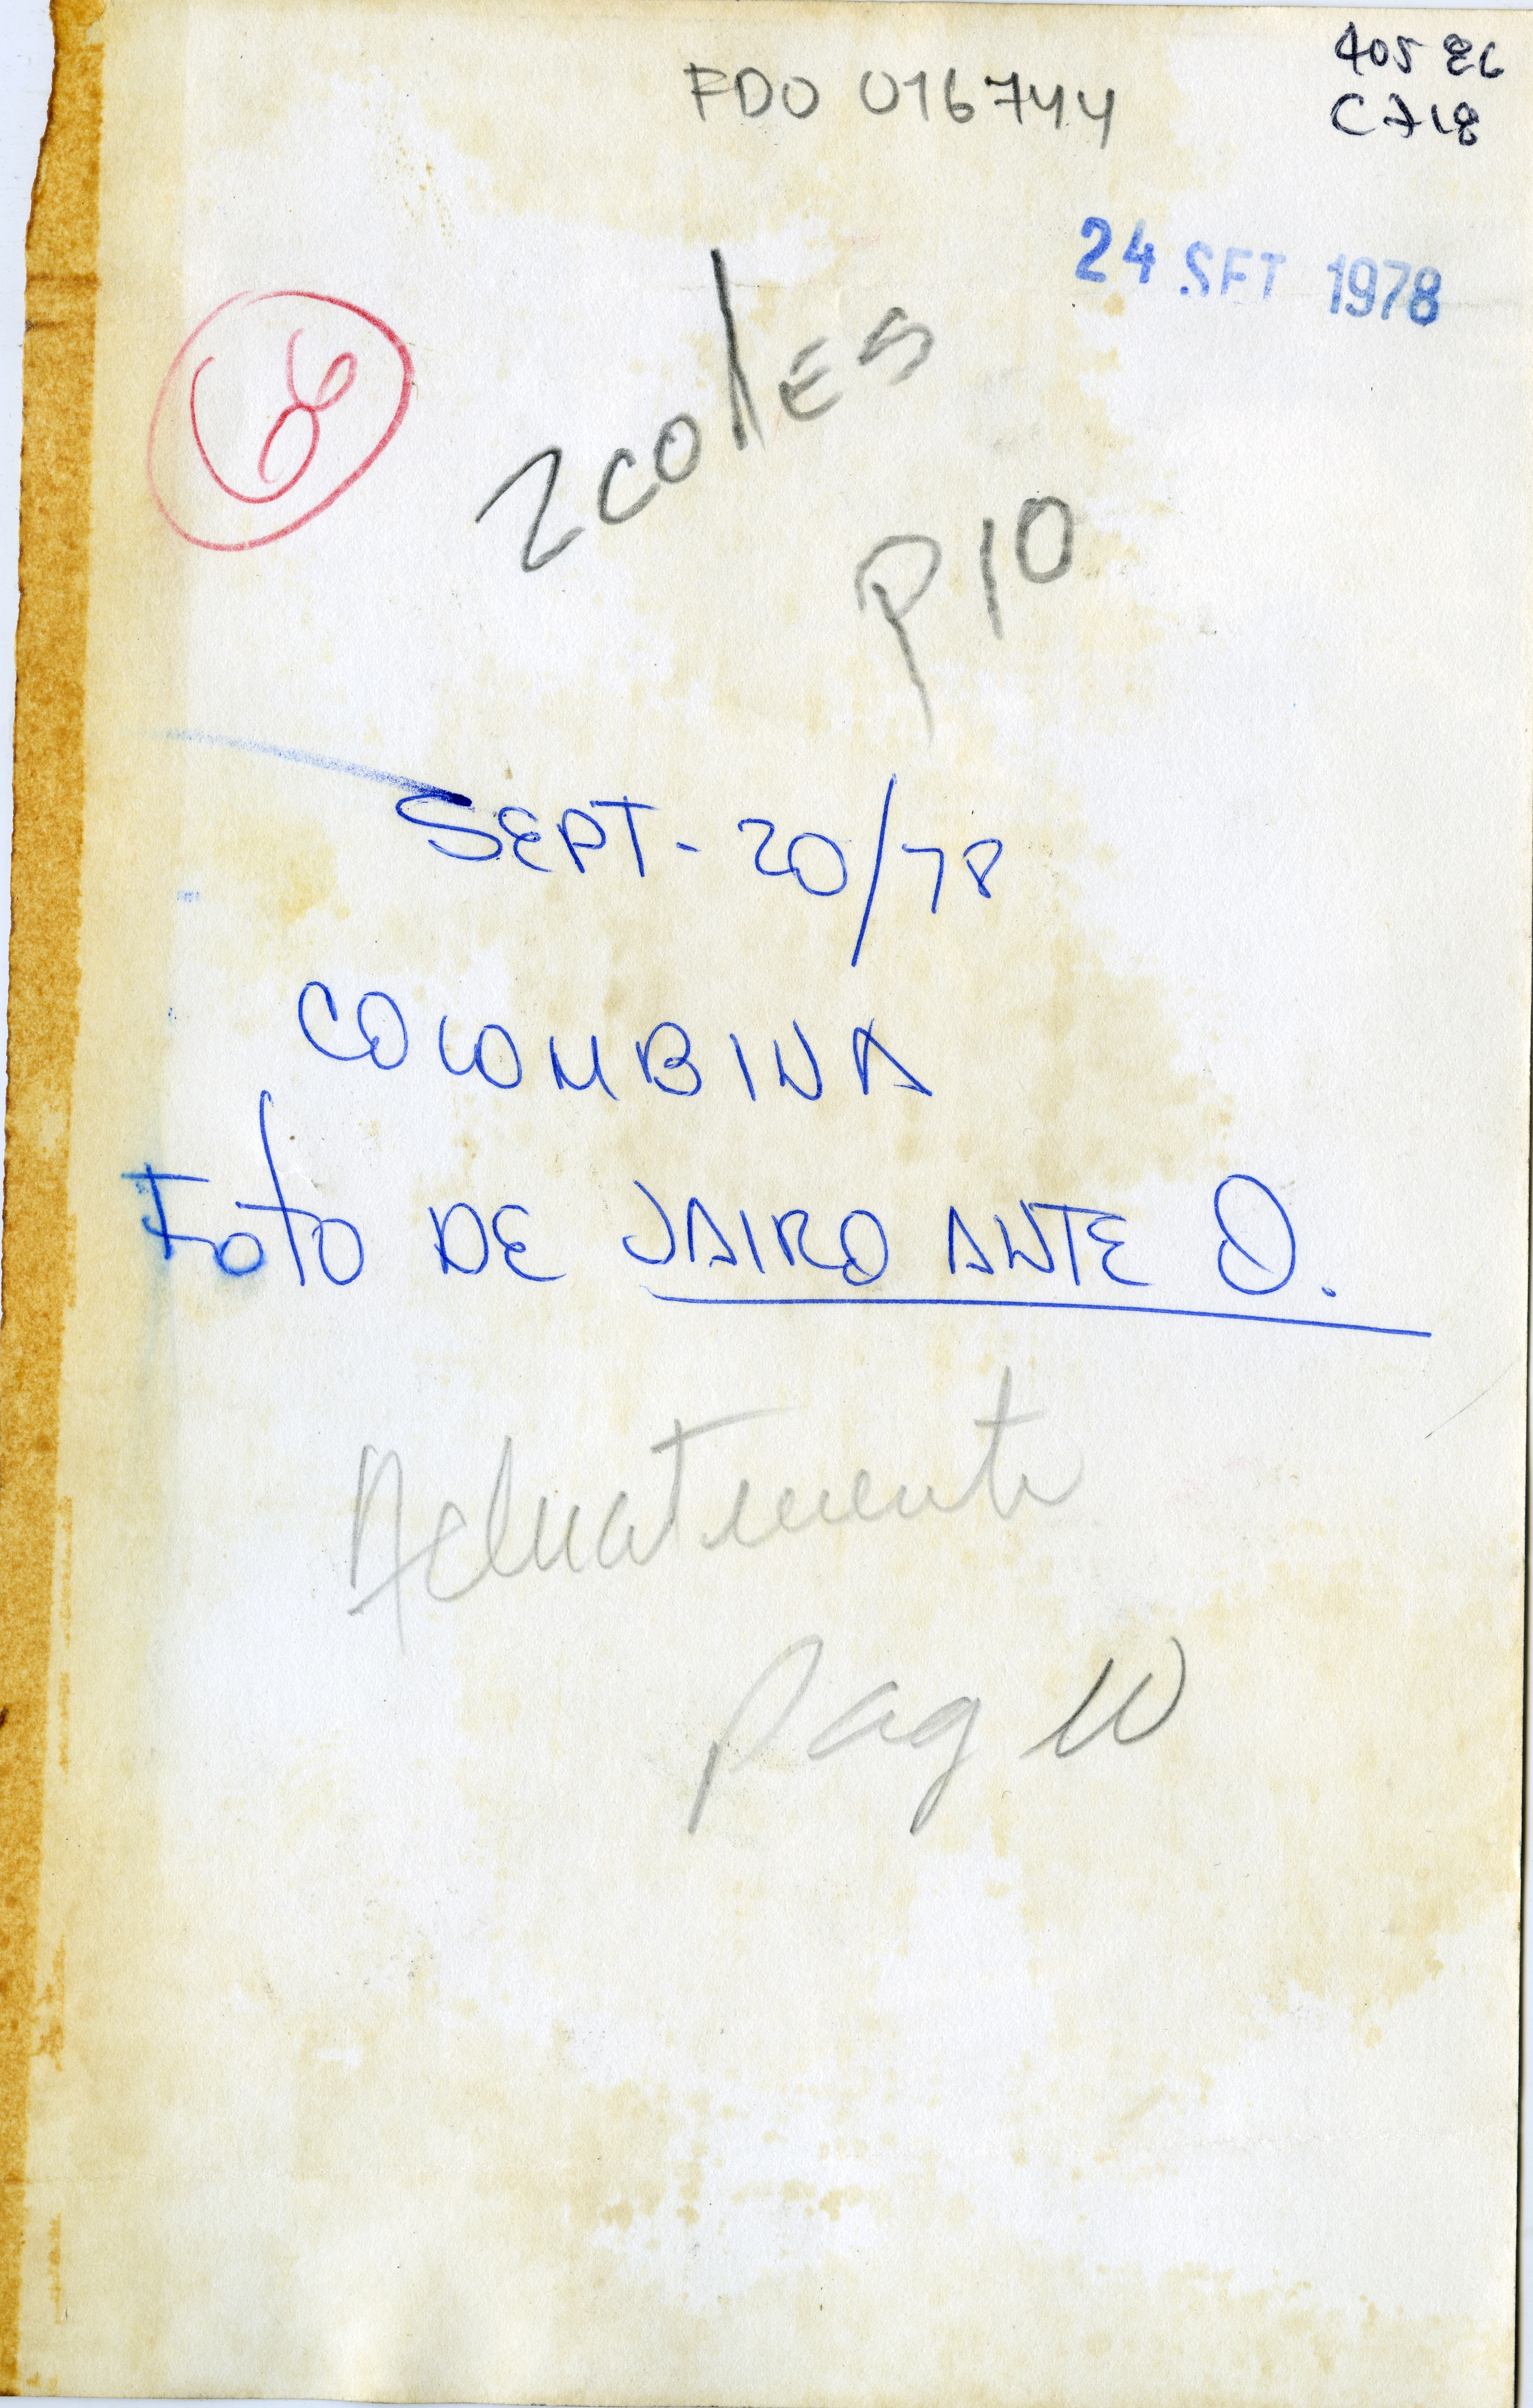 405 86
C718
FDO 016744
24 SET 1978
2 colles
P10
SEPT-20/78
COLOMBINA
FOTO DE JAIRO ANTE O.
Actualmente
pag 10